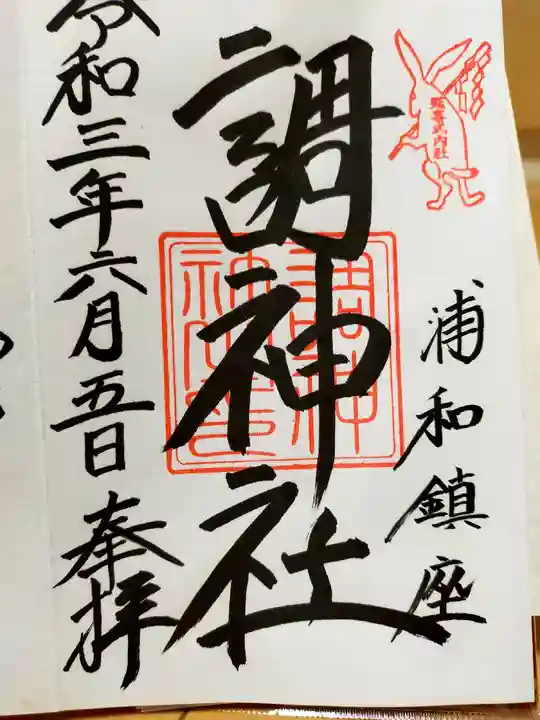 延喜式内社
浦和鎮座
調神社
調神社印
令和三年六月五日奉拝